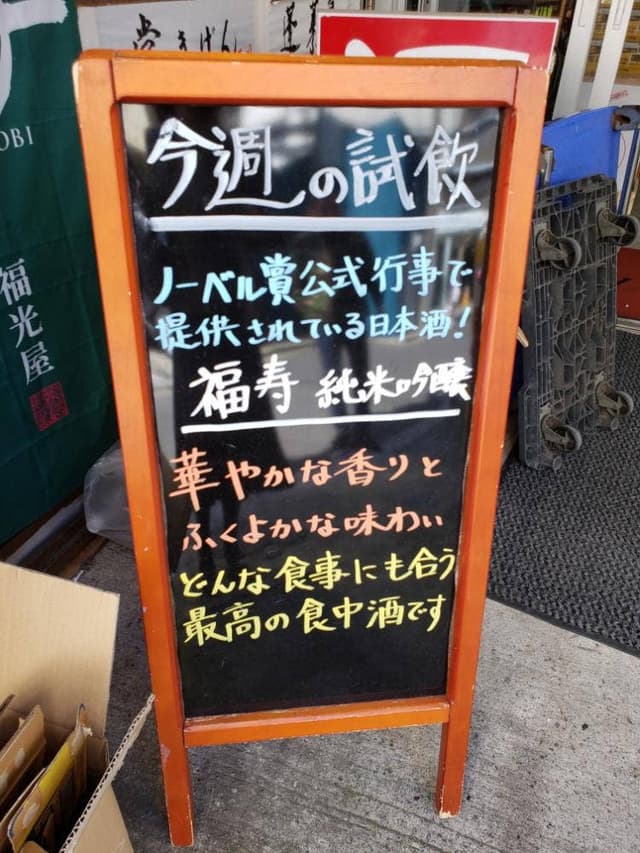 今週の試飲
ノーベル賞公式行事で
提供されている日本酒!
福寿 純米吟醸
華やかな香りと
ふくよかな味わい
どんな食事にも合う
最高の食中酒です
福光屋
OBI